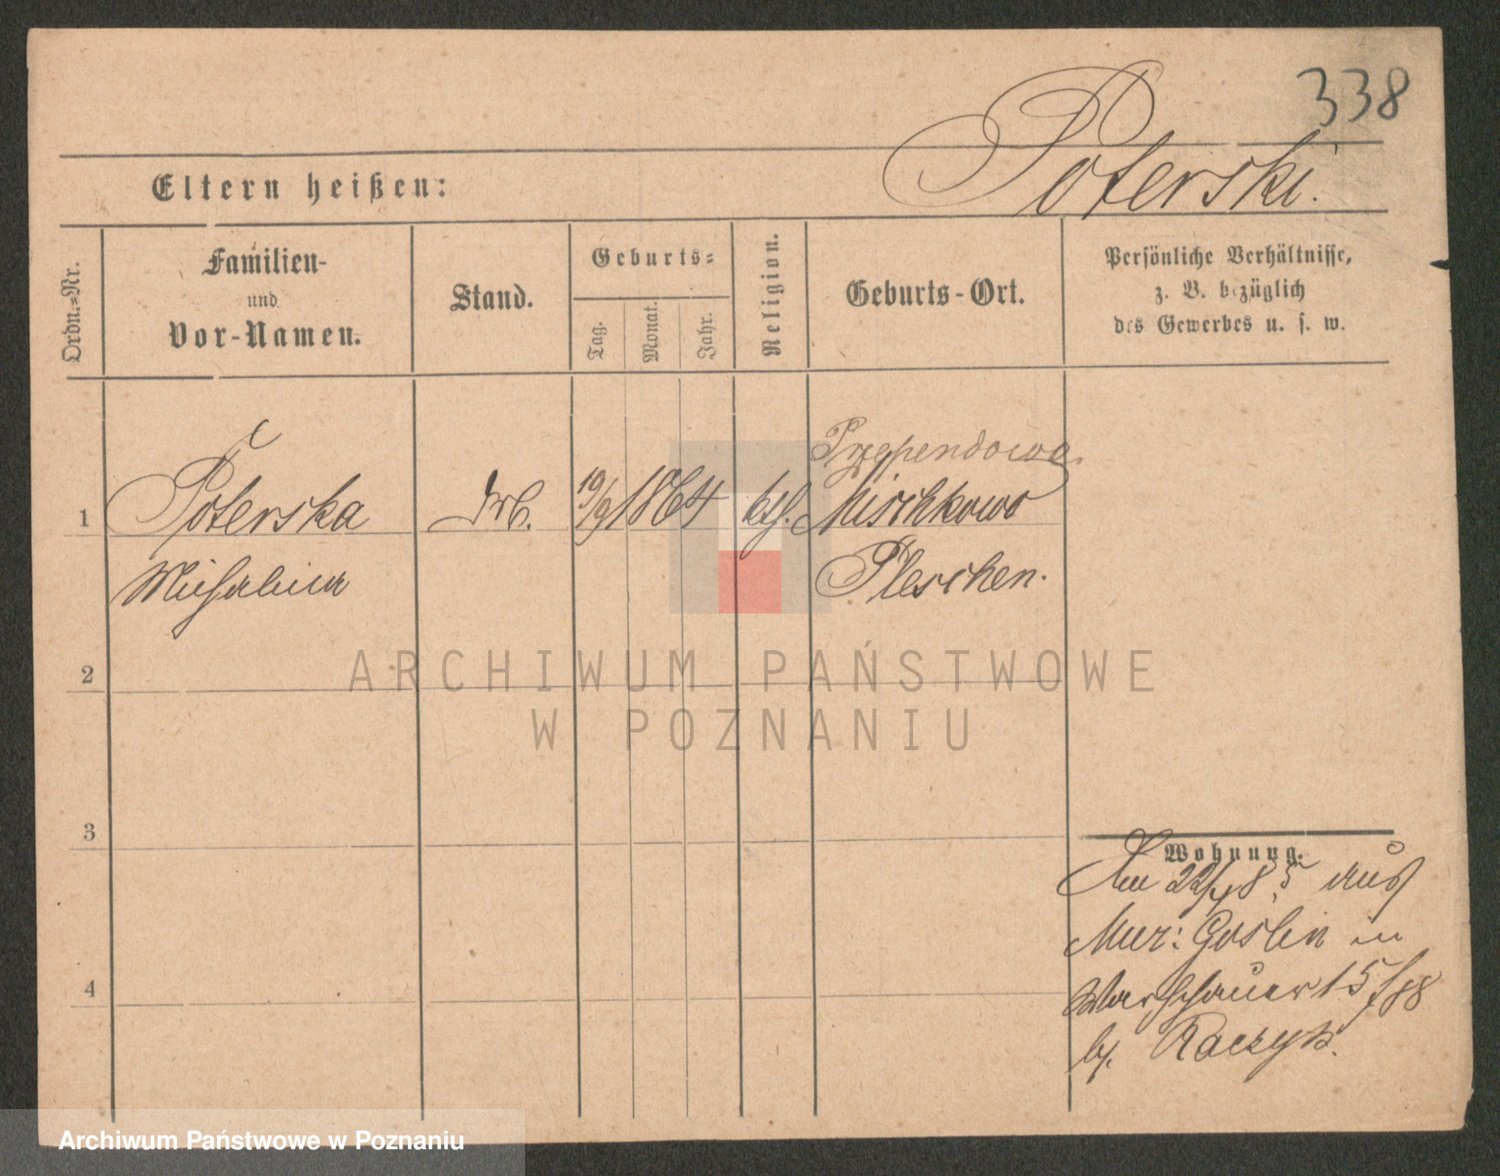 338
Poterski.
Eltern heißen:
Ordn.=Nr.
Familien-
und
Vor-Namen.
Stand.
Geburts=
Tag.
Monat.
Jahr.
Religion.
Geburts-Ort.
Persönliche Verhältnisse,
z. B. bezüglich
des Gewerbes u. s. w.
1
Poterska
Michalina
19/9 1864
kth.
Mischkowo
Pleschen.
2
3
4
Wohnung.
Am 22/4 85 aus
Mur: Goslin in
Warschauer 15/
b/. Raczyk.
ARCHIWUM PAŃSTWOWE
W POZNANIU
Archiwum Państwowe w Poznaniu